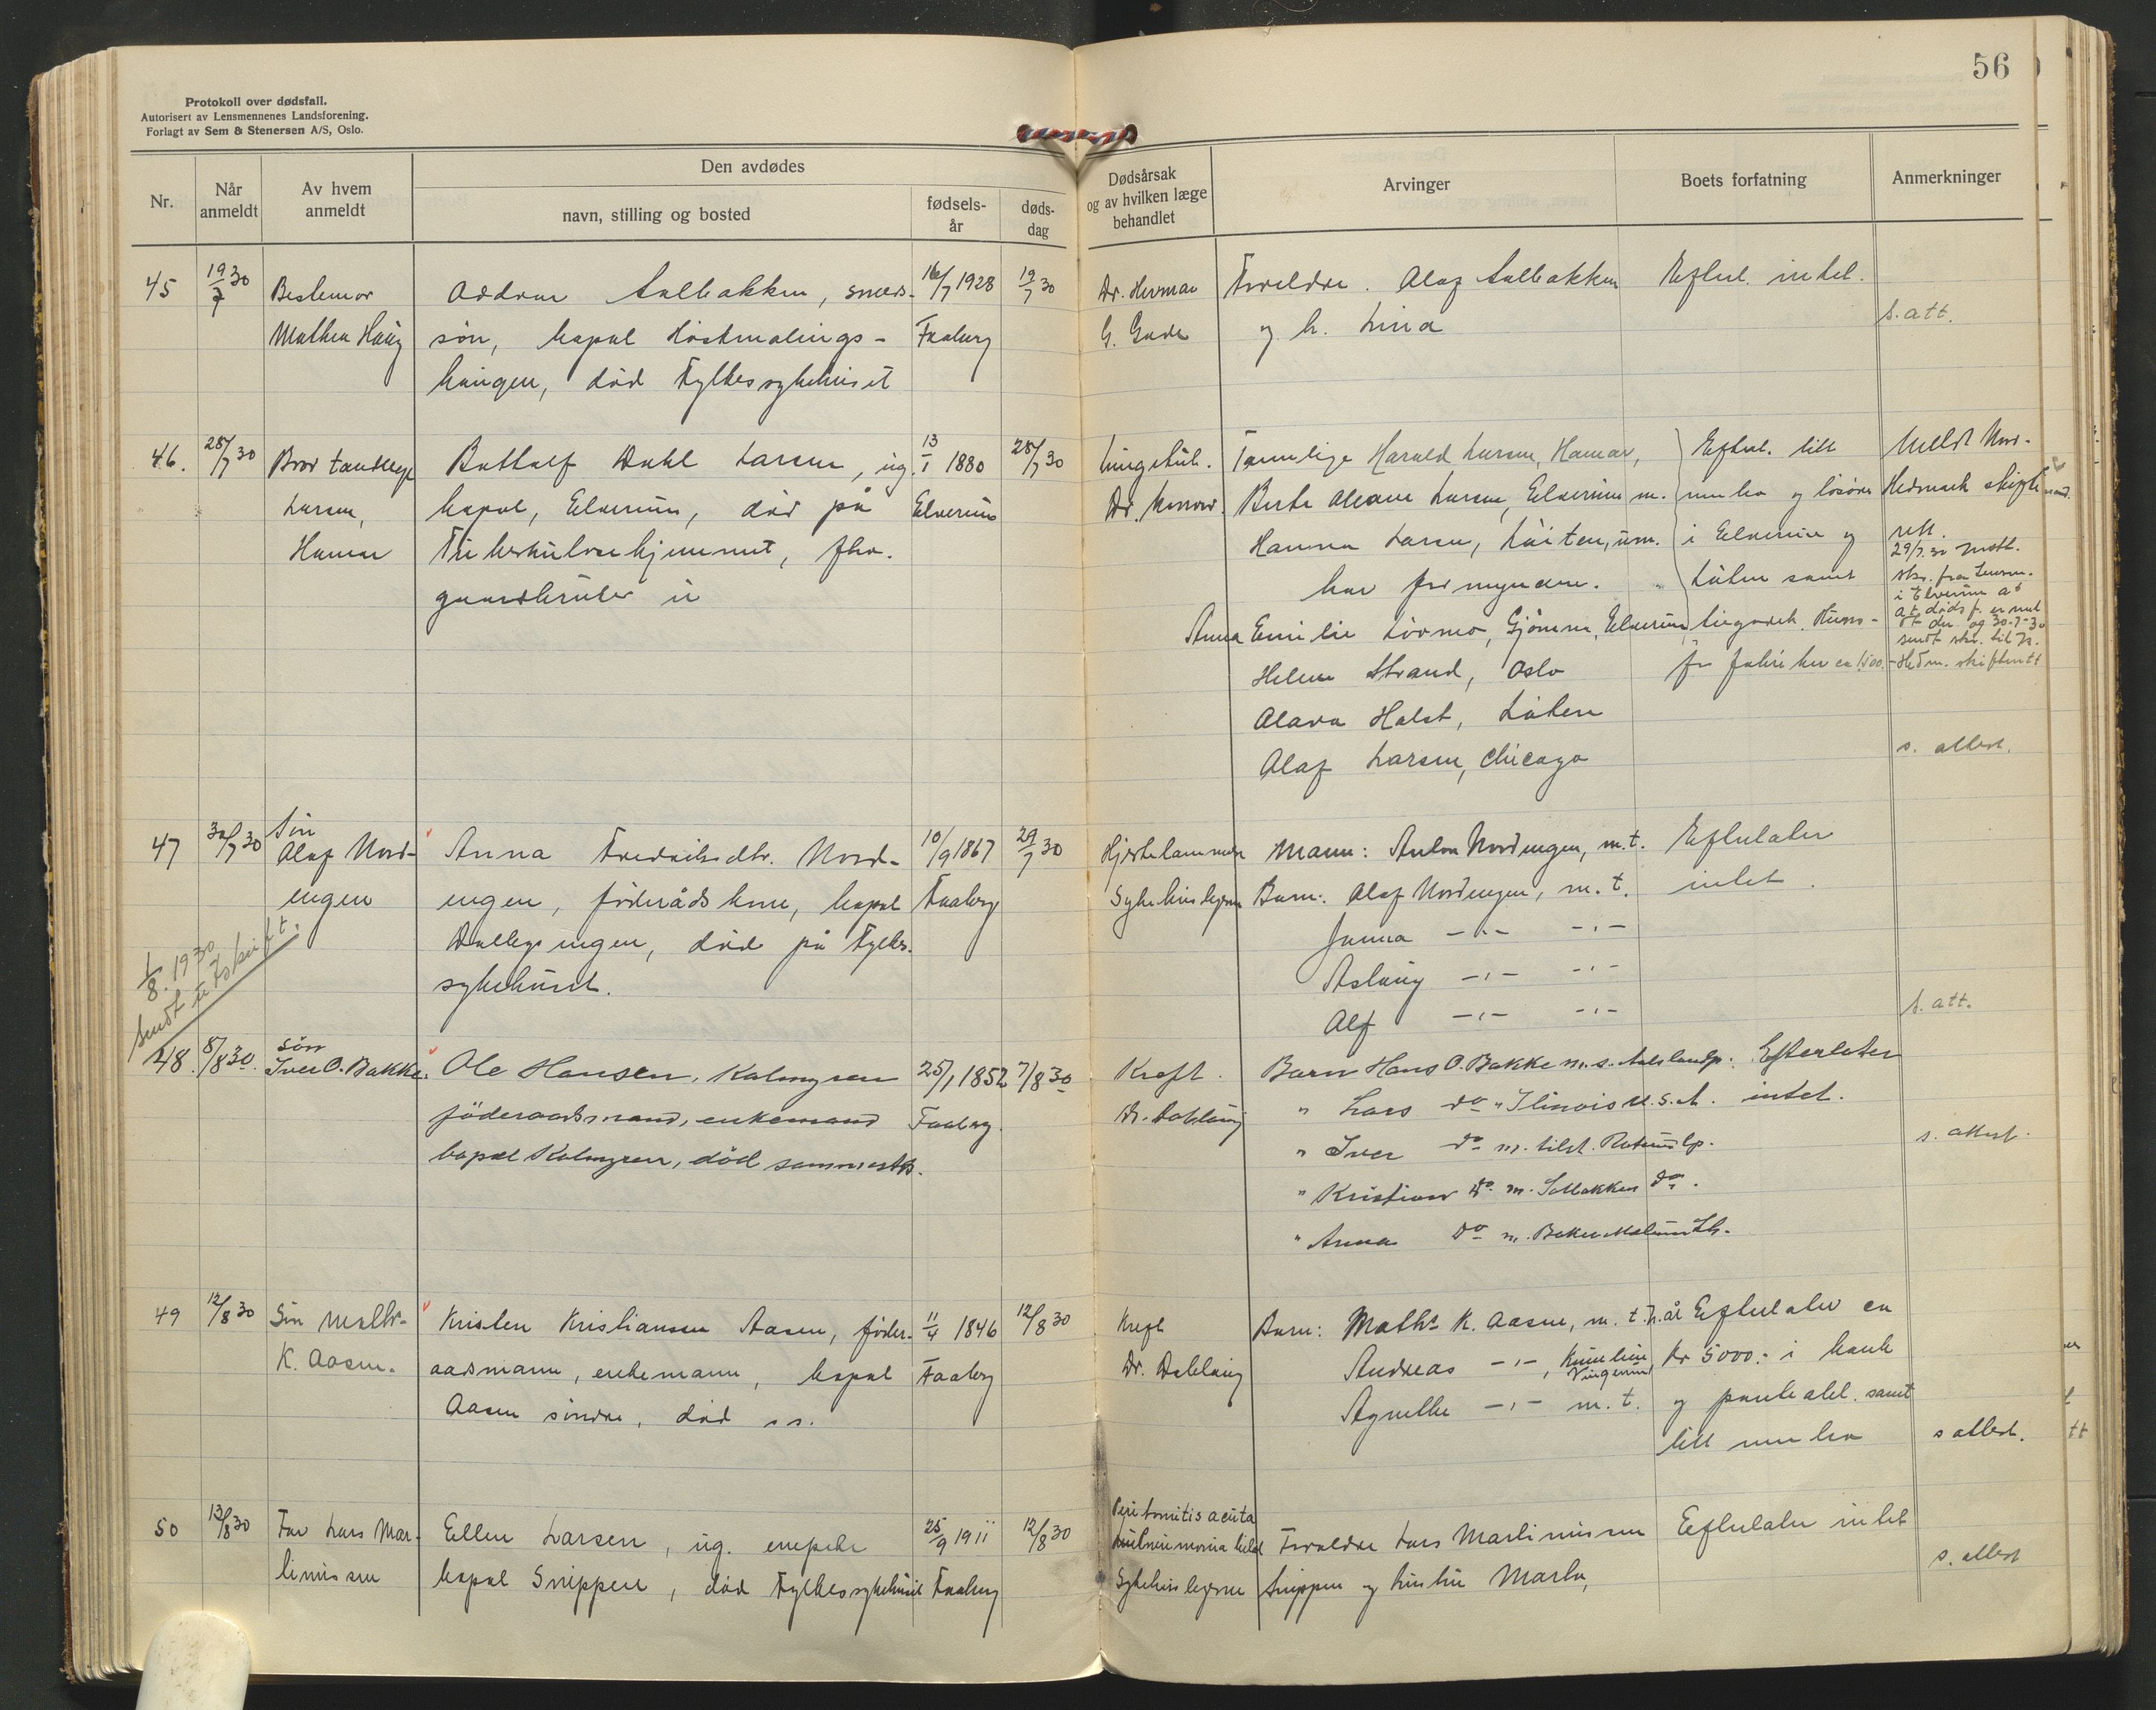 56
Protokoll over dødsfall.
Autorisert av Lensmennenes Landsforening.
Forlagt av Sem & Stenersen A/S, Oslo.
Nr.
Når anmeldt
Av hvem anmeldt
Den avdødes
navn, stilling og bosted
fødselsår
dødsdag
Dødsårsak og av hvilken læge behandlet
Arvinger
Boets forfatning
Anmerkninger
45
19/7 30
Bestemor
Mathea Haug
Oddvar Aalbakken, smeds-
søn, bopæl
haugen, död Fylkessykehuset
16/7 1928
Faaberg
19/7 30
Dr. Herman
G. Gade
Foreldre. Olaf Aalbakken
og h. Lina
Efterl. intet.
s. att.
46.
28/7 30
Bror tandlege
Larsen,
Hamar
Botholf Dahl Larsen, ug.
bopæl, Elverum, död på
Tuberkulosehjemmet, fhv.
gaardbruker
13/1 1880
Elverum
28/7 30
Lungetub.
Dr.
Harald Larsen, Hamar,
Berte Oleane Larsen, Elverum m.
Hanna Larsen, Löiten, um.
har formyndere.
Anna Emilie Lövmo, Gjömme, Elverum
Helene Strand, Oslo
Olava Holst, Löten
Olaf Larsen, Chicago
Efterl. litt
innbo og lösöre
i Elverum og
Löten samt
Meldt Nord-
Hedmark skifte
rett.
29/7. 30 mott.
skr. fra Lensm.
i Elverum at
at dødsf. er mel
dt der og 30-7-30
sendt skr. til N.
Hedm. skifterett
s. attest.
47
30/7 30
Sön
Olaf Nord-
engen
Anna Fredriksdtr. Nord-
engen, föderådskone, bopæl
engen, död på Fylkes-
sykehuset.
10/9 1867
Faaberg
29/7 30
Hjertelammelse
Sykehuslegene
Mann: Anton Nordengen, m. t.
Barn: Olaf Nordengen, m. t.
Janna -"- -"-
Aslaug -"- -"-
Alf -"- -"-
Efterlater
intet.
s. att.
1/8. 1930
sendt utskrift.
48.
8/8 30.
sön
Iver O. Bakke.
Ole Hansen, Kalmyren
föderaadsmand, enkemand
bopæl Kalmyren, död sammesteds.
25/1 1852
Faaberg.
7/8 30
Kreft.
Dr. Dablaug
Barn Hans O. Bakke m. s.
" Lars do " Ilinois U. S. A.
" Iver do m. tilst.
" Kristian do m. Solbakken do.
" Anna do m.
Efterlater
intet.
s. attest.
49
12/8 30
Sön Maths
K. Aasen.
Kristen Kristiansen Aasen, föder-
aadsmann, enkemann, bopæl
Aasen söndre, död s. s.
11/4 1846
Faaberg
12/8 30
Kreft
Dr. Dablaug
Barn: Maths K. Aasen, m. t.
Andreas -"-,
Vingrom
Agnethe -"- m. t.
Efterlater ca
kr 5000.- i bank
og pantobl. samt
litt innbo
s attest.
50
13/8 30
Far Lars Mar-
tinissen
Ellen Larsen, ug. enepike
bopæl Snippen, död Fylkessykehuset
25/9 1911
Faaberg
12/8 30
Peritonitis acuta
Sykehuslegene
Foreldre Lars Martinissen
Snippen og hustru Marte,
Efterlater intet
s. attest